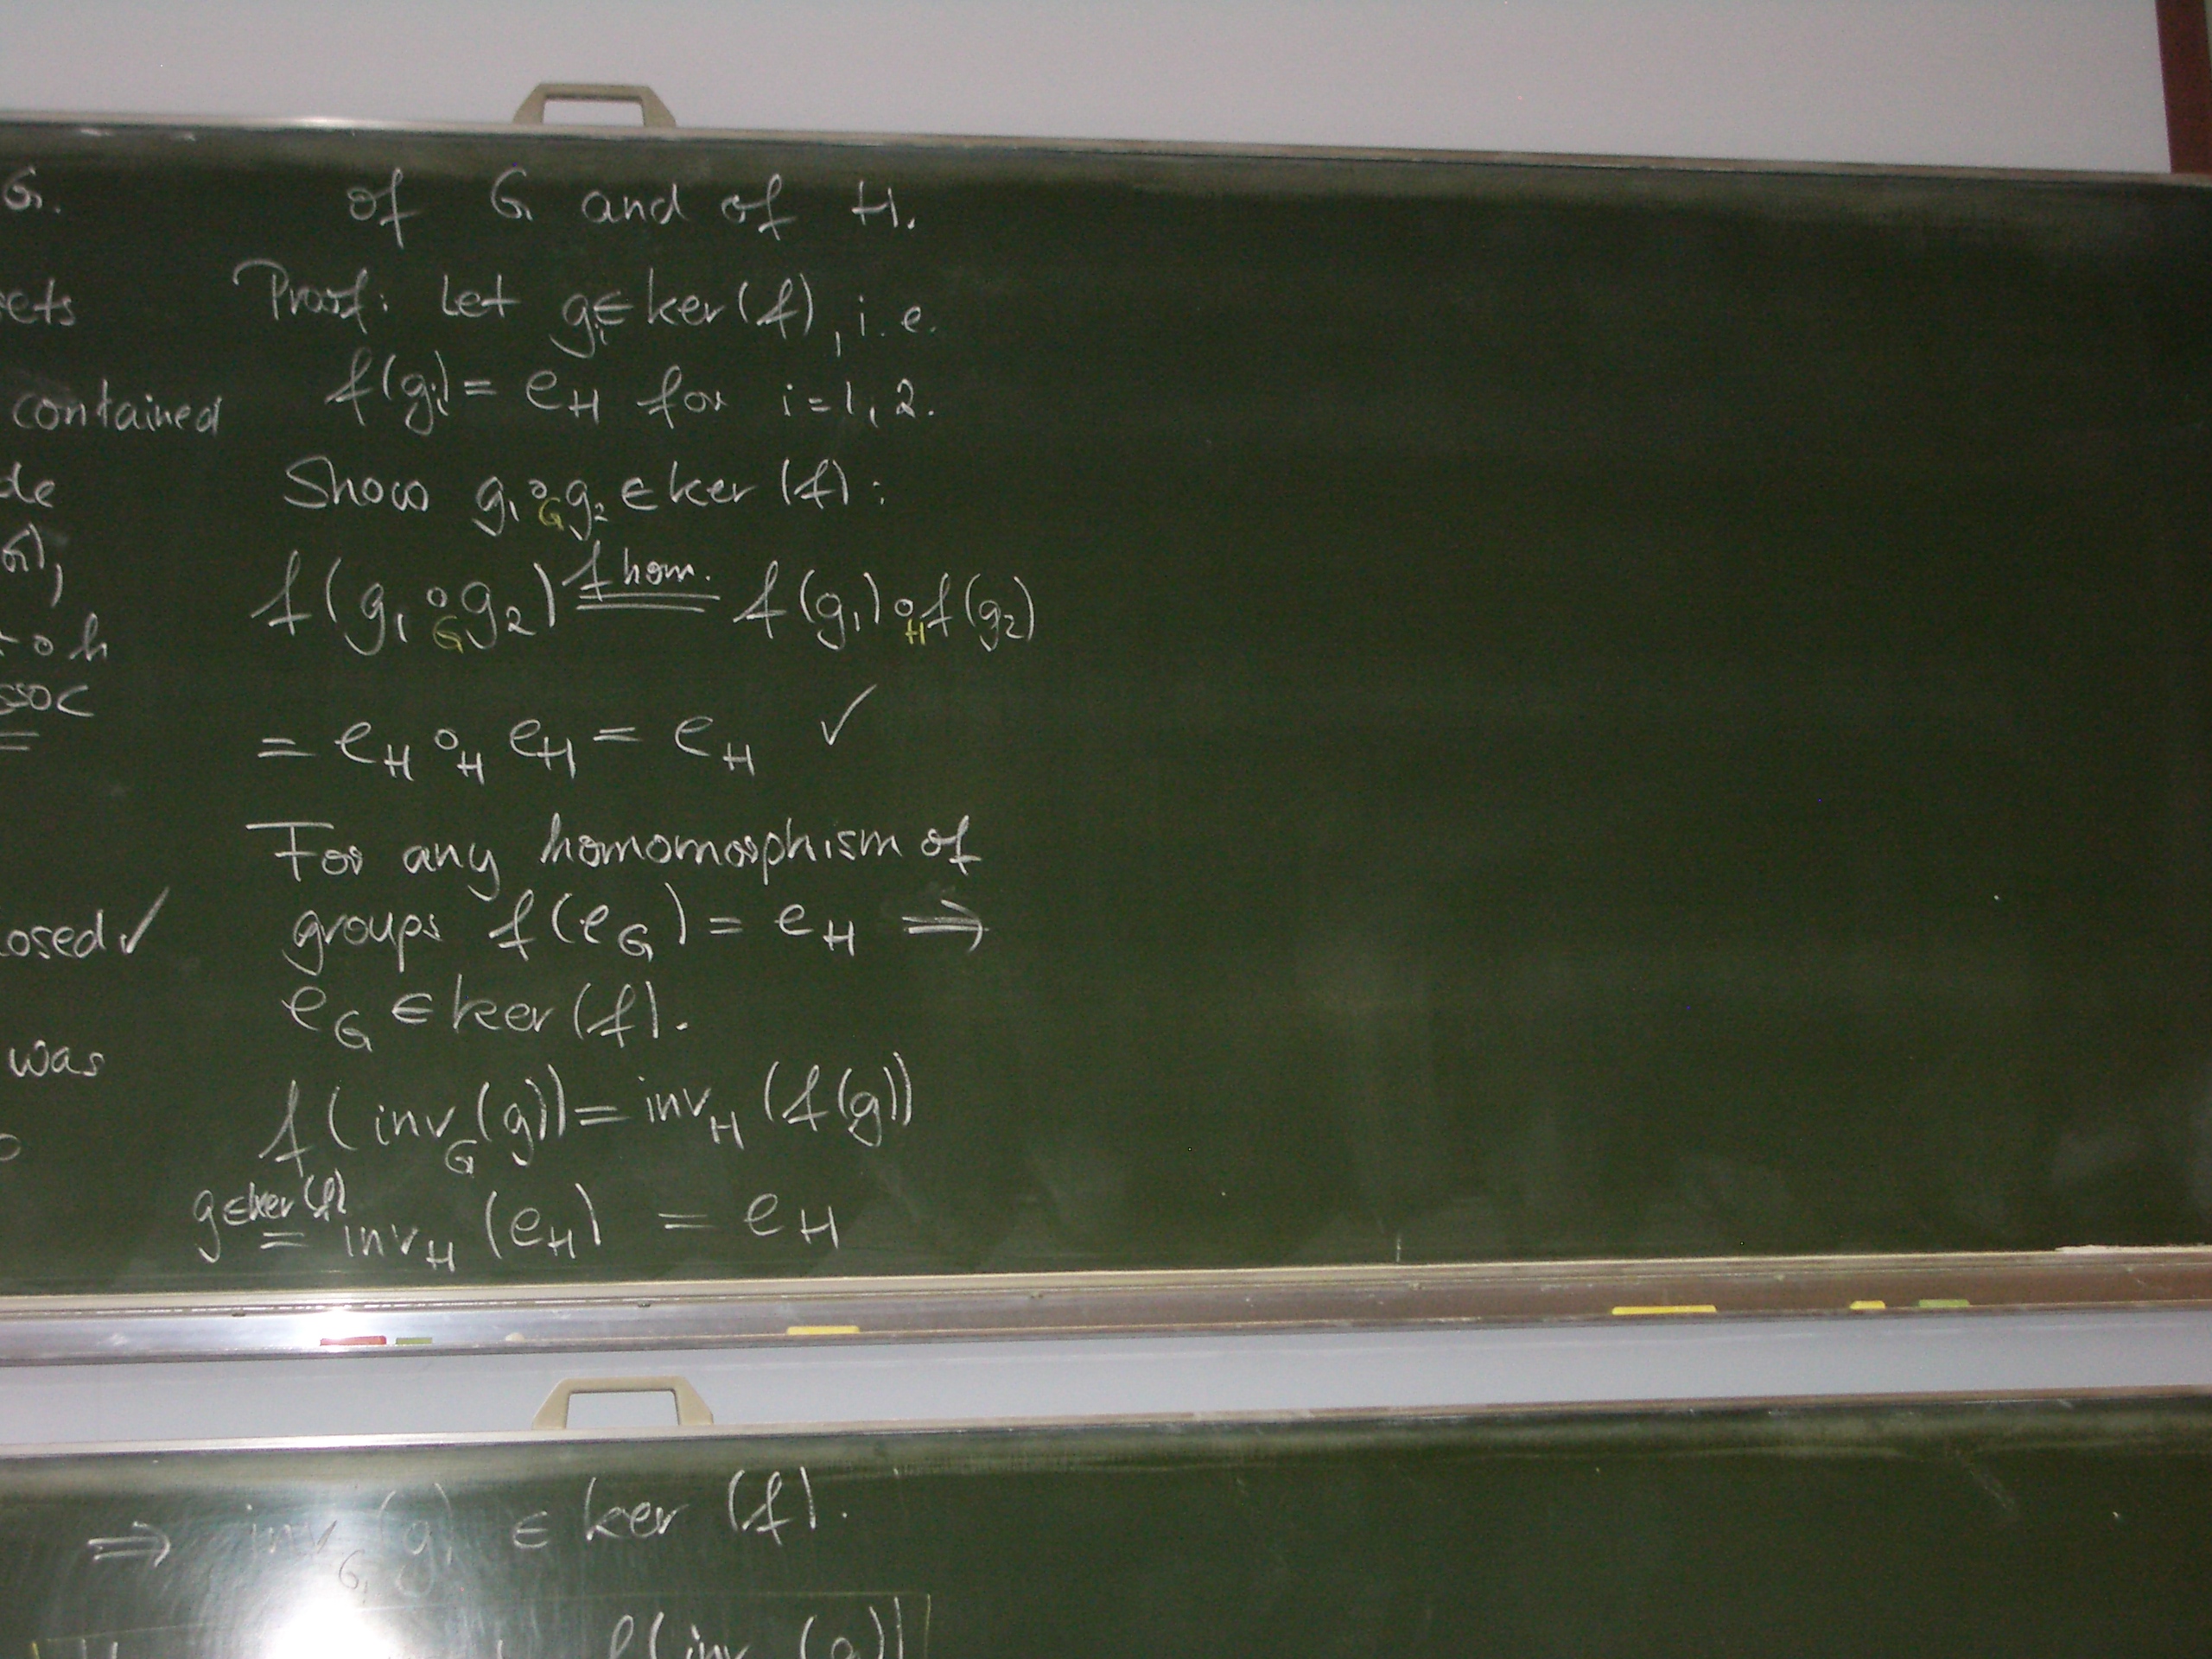 G.
sets
contained
de
G),
∘ h
ssoc
=
losed ✓
was
of G and of H.
Proof: Let gᵢ ∈ ker(f), i.e.
f(gᵢ) = e_H for i=1,2.
Show g₁ ∘_G g₂ ∈ ker(f):
f(g₁ ∘_G g₂) =^{f hom.} f(g₁) ∘_H f(g₂)
= e_H ∘_H e_H = e_H ✓
For any homomorphism of
groups f(e_G) = e_H ⇒
e_G ∈ ker(f).
f(inv_G(g)) = inv_H(f(g))
=^{g∈ker(f)} inv_H(e_H) = e_H
⇒ inv_G(g) ∈ ker(f).
f(inv (g))